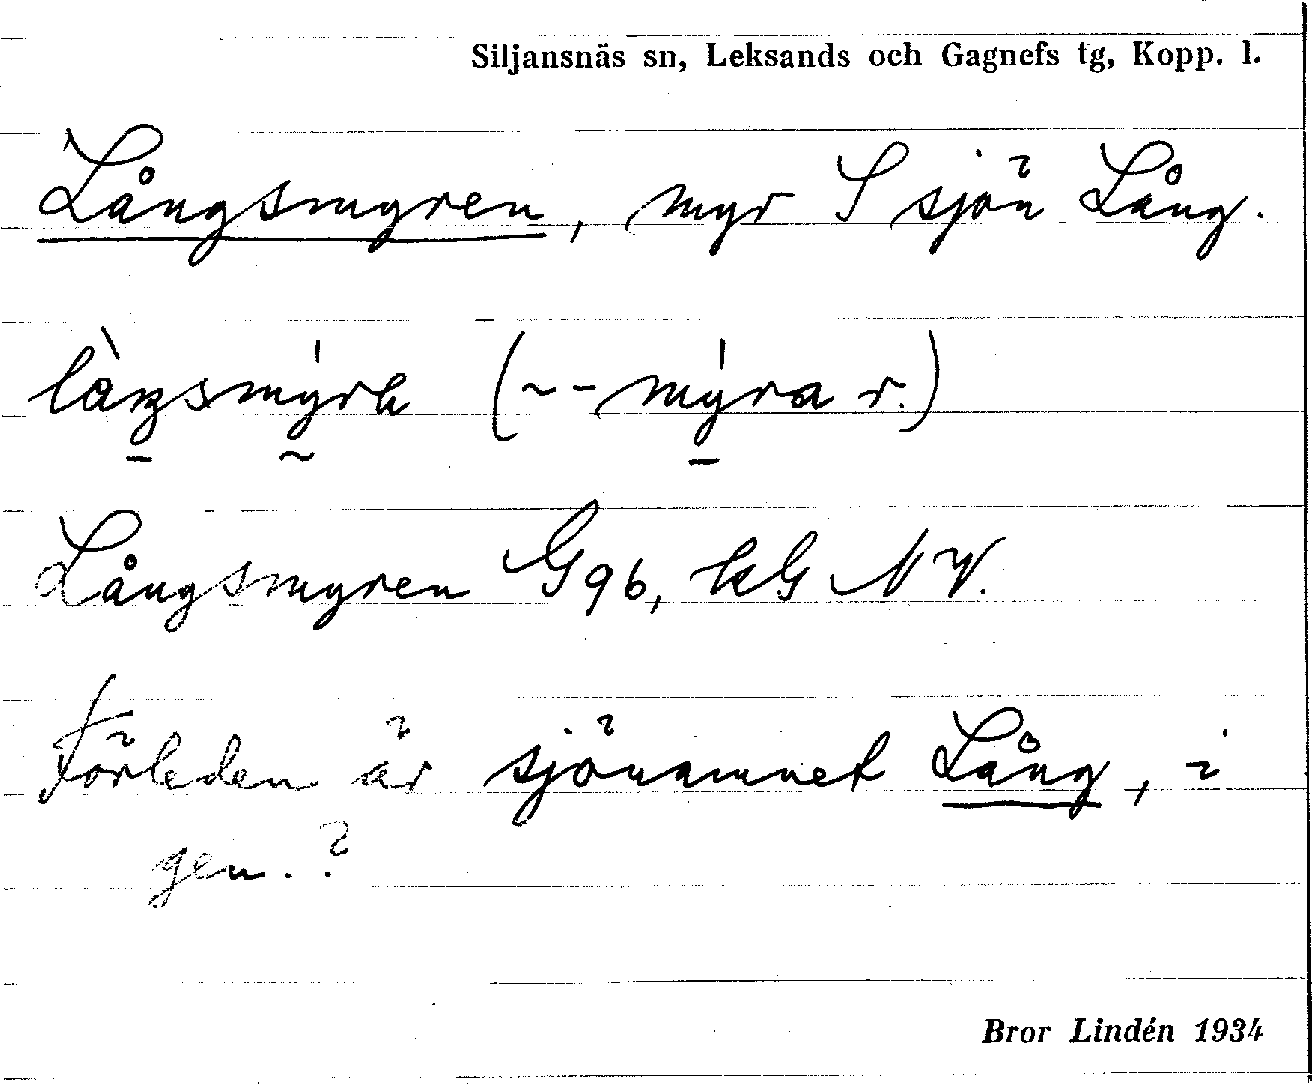 Siljansnäs sn, Leksands och Gagnefs tg, Kopp. l.
Långsmyren, myr S sjön Lång.
(~--myra r.)
Långsmyren G96, kG NV.
Förleden är sjönamnet Lång, i
gen.?
Bror Lindén 1934